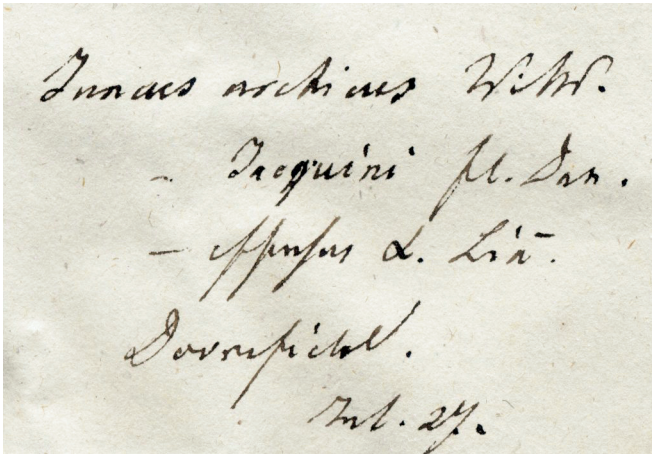 Juncus arcticus Willd.
- Jacquini fl. Dan.
- effusus α. Lin.
Dovrefield.
Jul. 27.